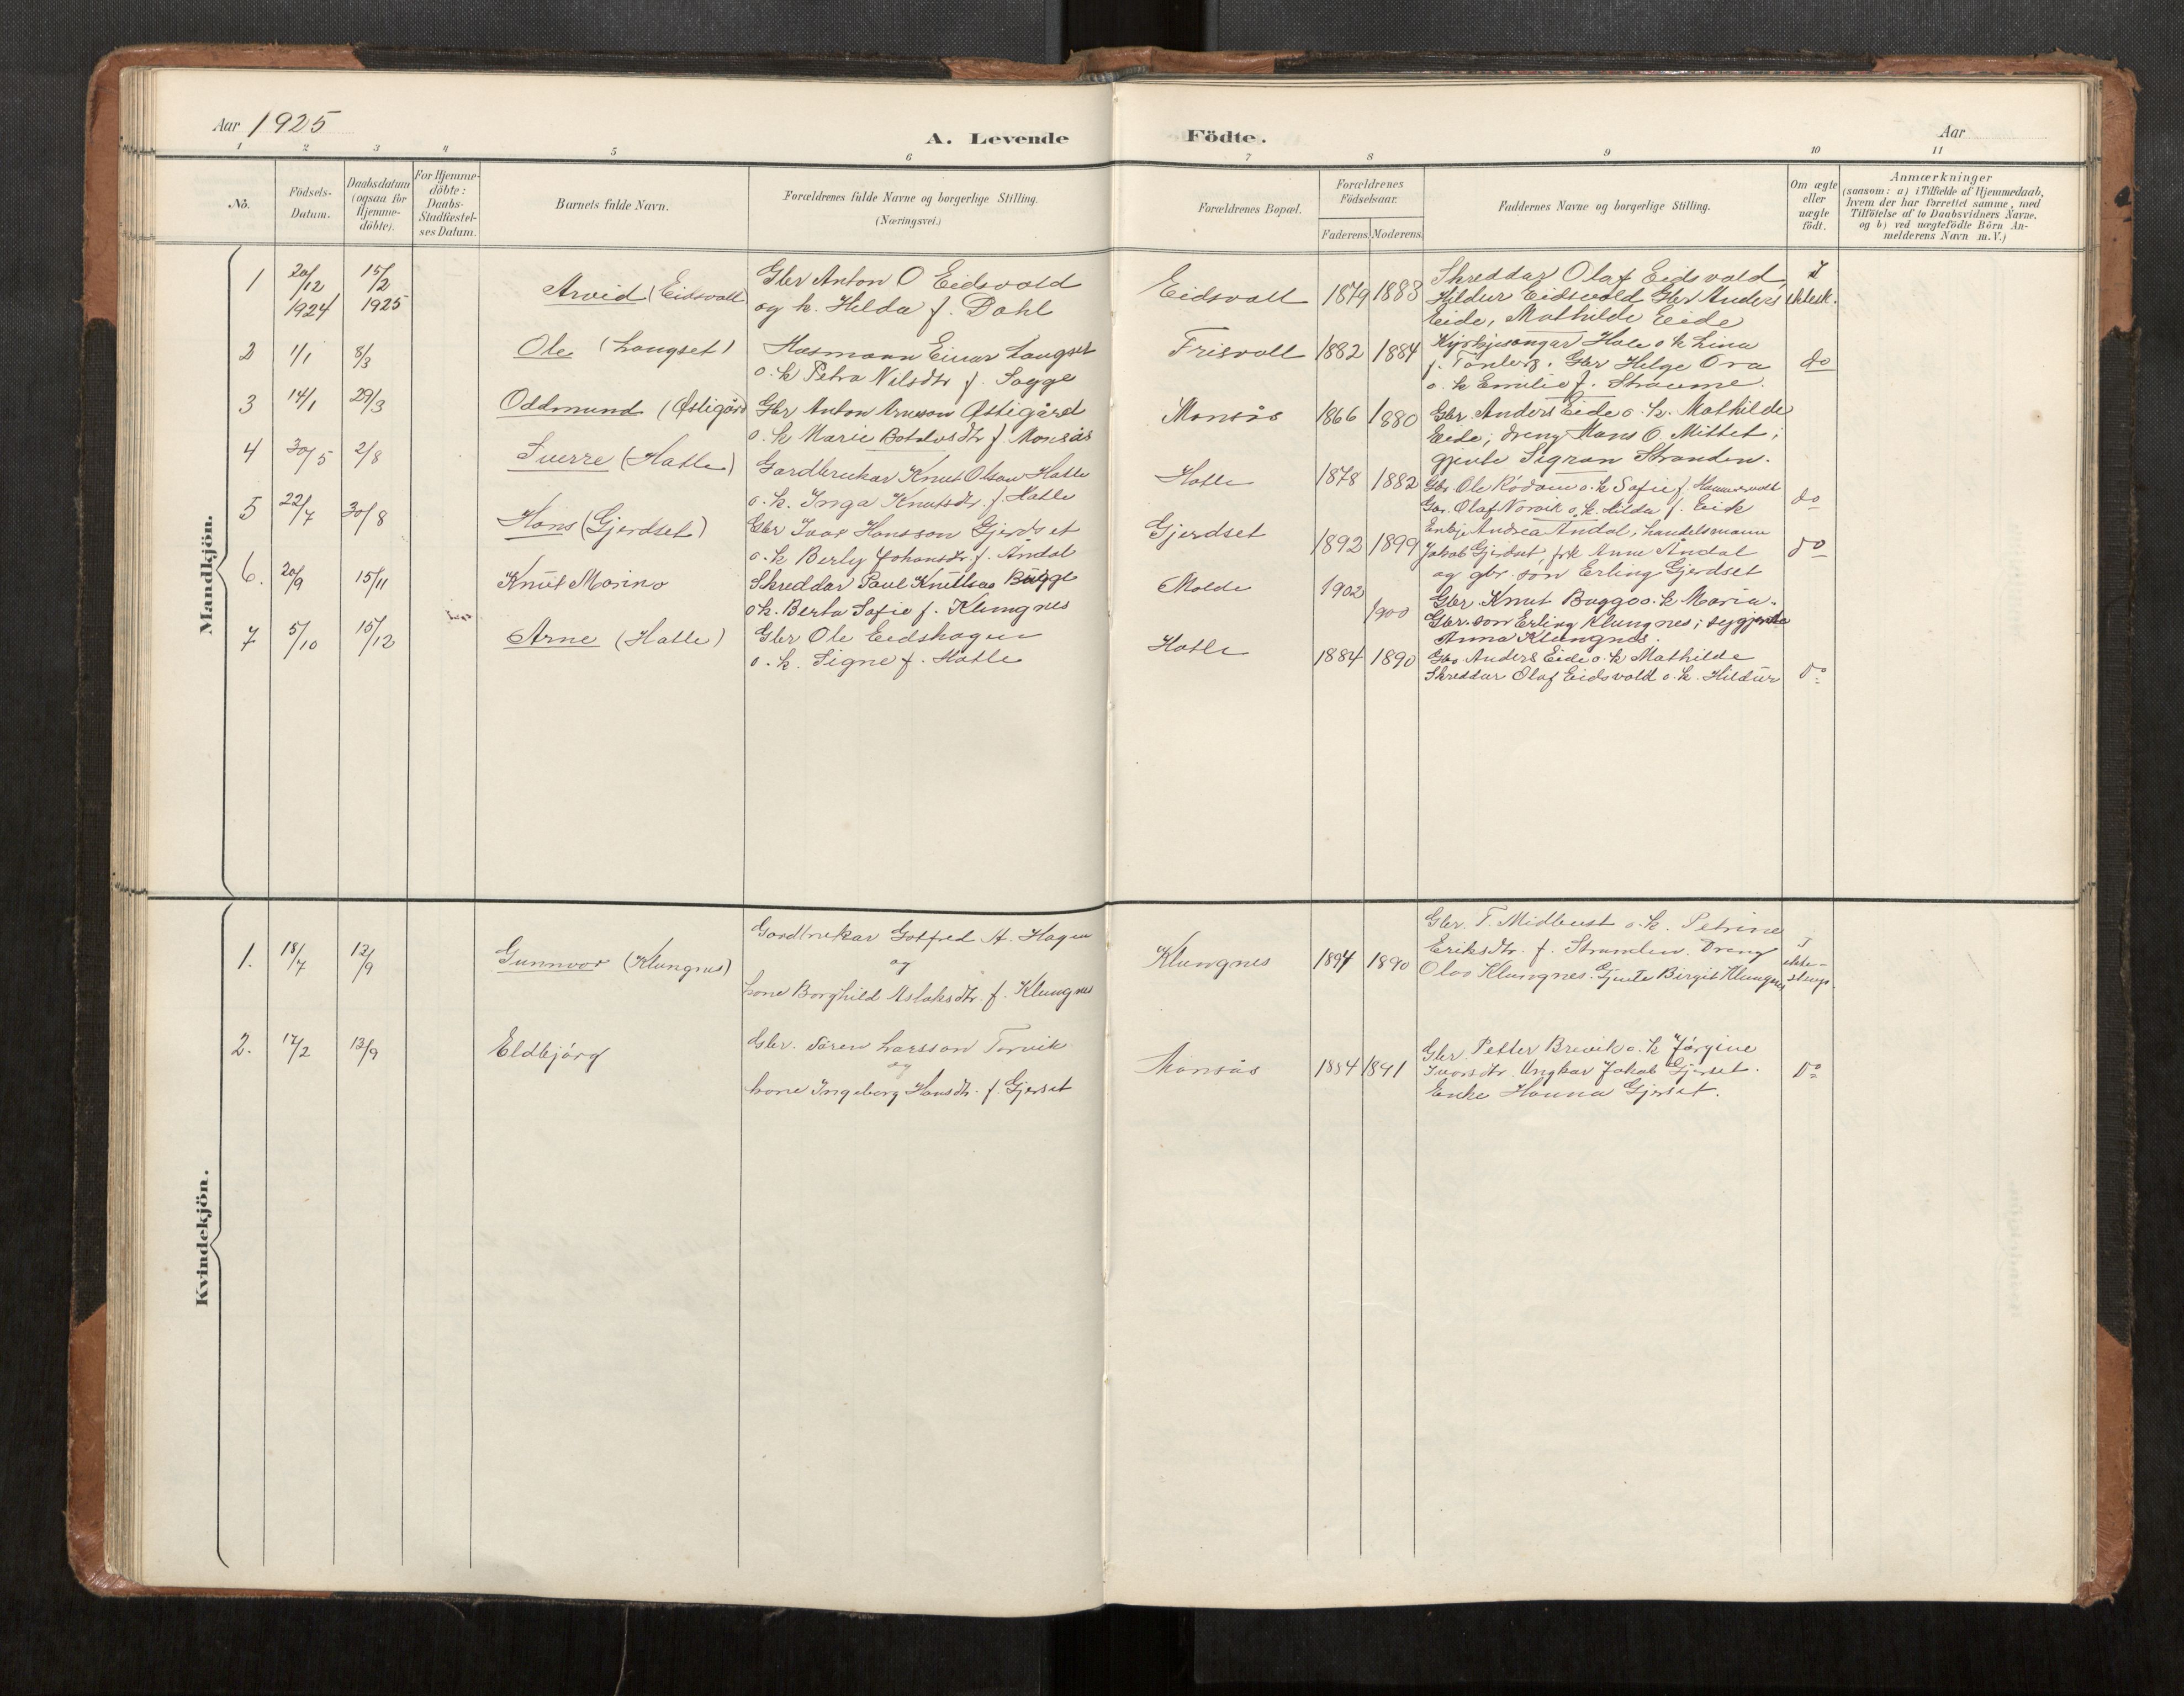 Aar 1925
A. Levende
Födte.
Aar
1 2 3 4 5 6 7 8 9 10 11
No.
Födsels-
Datum.
Daabsdatum
(ogsaa for
Hjemme-
döbte).
For Hjemme-
döbte:
Daabs-
Stadfæstel-
ses Datum.
Barnets fulde Navn.
Forældrenes fulde Navne og borgerlige Stilling.
(Næringsvei.)
Forældrenes Bopæl.
Forældrenes
Födselsaar.
Faderens. Moderens.
Faddernes Navne og borgerlige Stilling.
Om ægte
eller
uægte
födt.
Anmærkninger
(saasom: a) i Tilfælde af Hjemmedaab,
hvem der har forrettet samme, med
Tilföielse af to Daabsvidners Navne.
og b) ved uægtefödte Börn An-
melderens Navn m.V.)
Mandkjön.
1 20/12 1924 15/2 1925 Arvid (Eidsvoll)
Gbr Anton O Eidsvold
og k. Hilda f. Dahl
Eidsvoll 1879 1883
Skreddar Olaf Eidsvold,
Hildur Eidsvold Gbr Anders
Eide, Mathilde Eide
I
ektesk.
2 1/1 8/3 Ole (Langset)
Husmann Einar Langset
o. k Petra Nilsdtr f. Sogge
Frisvoll 1882 1884
Kyrkjesongar Hole o k Lina
f. Tønberg. Gbr Helge Ora
o. k Emilie f. Straume.
do
3 14/1 29/3 Oddmund (Østigård
Gbr Anton Arneson Østigård
o. k Marie Botolvsdtr f. Monsås
Monsås 1866 1880
Gbr. Anders Eide o. k. Mathilde
Eide; dreng Hans O. Mittet;
gjente Sigrun Stranden.
4 30/5 2/8 Sverre (Hatle)
Gardbrukar Knut Olson Hatle
o. k. Inga Knutsdtr. f. Hatle
Hatle 1878 1882
Gbr. Ole Rödam o. k Sofie f. Hammervoll
Gbr. Olaf Norvik o. k. Hilda f. Eide
do
5 22/7 30/8 Hans (Gjerdset)
Gbr Ivar Hansson Gjerdset
o. k Berly Johansdr. f. Åndal
Gjerdset 1892 1899
Enkje Andrea Åndal, handelsmann
Jakob Gjerdset frk Anne Åndal
og gbr. son Erling Gjerdset
do
6. 20/9 15/11 Knut Marino
Skreddar Paul Knutson Bugge
o k. Berta Sofie f. Klungnes
Molde 1902 1900
Gbr Knut Bugge o. k Maria.
Gbr. son Erling Klungnes; sygjente
Anna Klungnes.
7 5/10 15/12 Arne (Hatle)
Gbr Ole Eidshagen
o. k. Signe f. Hatle
Hatle 1884 1890
Gbr Anders Eide o. k Mathilde
Skreddar Olaf Eidsvold o. k. Hildur
do
Kvindekjön.
1. 18/7 13/9 Gunnvor (Klungnes)
Gardbrukar Gotfred A. Hagen
og
kone Borghild Aslaksdtr. f. Klungnes
Klungnes 1894 1890
Gbr. T. Midbust o. k. Petrine
Eriksdtr. f. Strumlen. Dreng
Olav Klungnes. Gjente Birgit Klungnes
I
ekte-
skap.
2. 17/2 13/9 Eldbjörg
Gbr. Sören Larsson Torvik
og
kone Ingeborg Hansdtr. f. Gjerset
Monsås 1884 1891
Gbr. Petter Brevik o. k Jörgine
Ivarsdtr. Ungkar Jakob Gjerset.
Enke Hanna Gjerset.
do